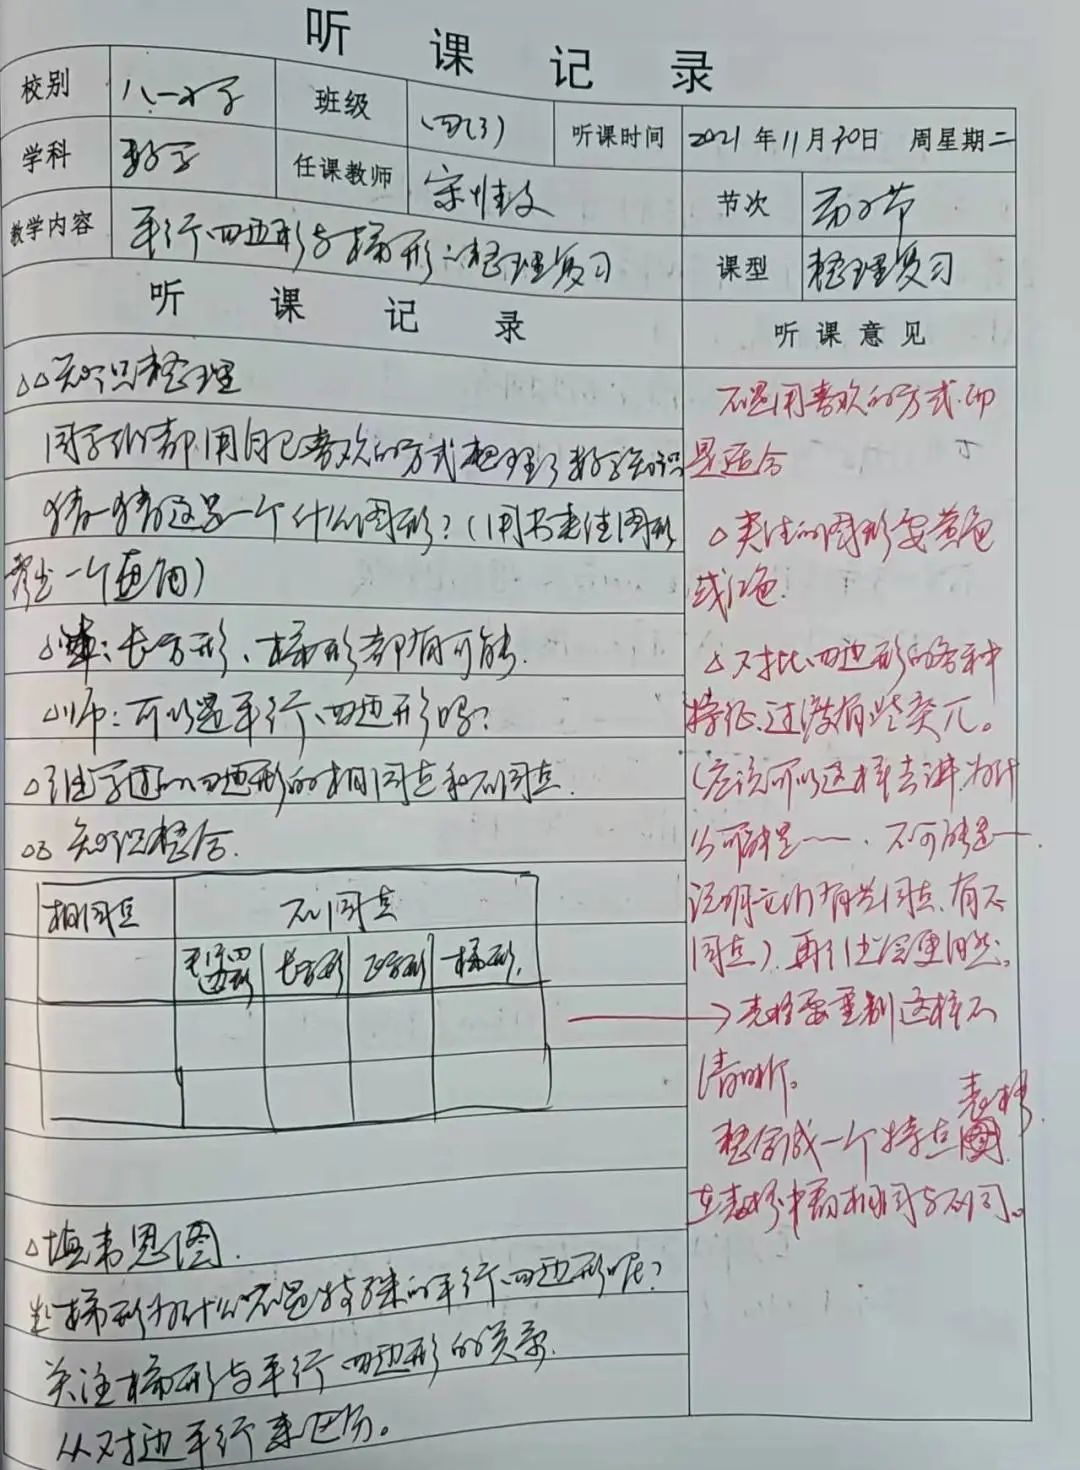 听课记录
校别 八一小学 班级 四(3) 听课时间 2021年11月30日 周星期二
学科 数学 任课教师 宋佳文 节次 第2节
教学内容 平行四边形与梯形的整理复习 课型 整理复习
听课记录
△△知识整理
同学们都用自己喜欢的方式整理了数学知识
猜一猜这是一个什么图形?(用书夹住图形
露出一个直角)
△生:长方形、梯形都有可能.
△师:可以是平行四边形吗?
△引出学过的四边形的相同点和不同点.
△△知识整合.
相同点 不同点
平行四边形 长方形 正方形 梯形
△填韦恩图.
生:梯形为什么不是特殊的平行四边形呢?
关注梯形与平行四边形的关系.
从对边平行来区分。
听课意见
不是用喜欢的方式.而
是适合
△夹住的图形要黄色
或红色.
△对比四边形的各种
特征.过渡有些突兀。
(应该可以这样去讲.为什
么可能是——、不可能是—
说明它们有共同点、有不
同点).再引出会更自然。
→表格要重制这样不
清晰。
整合成一个特点表格.
在表格中看相同与不同。